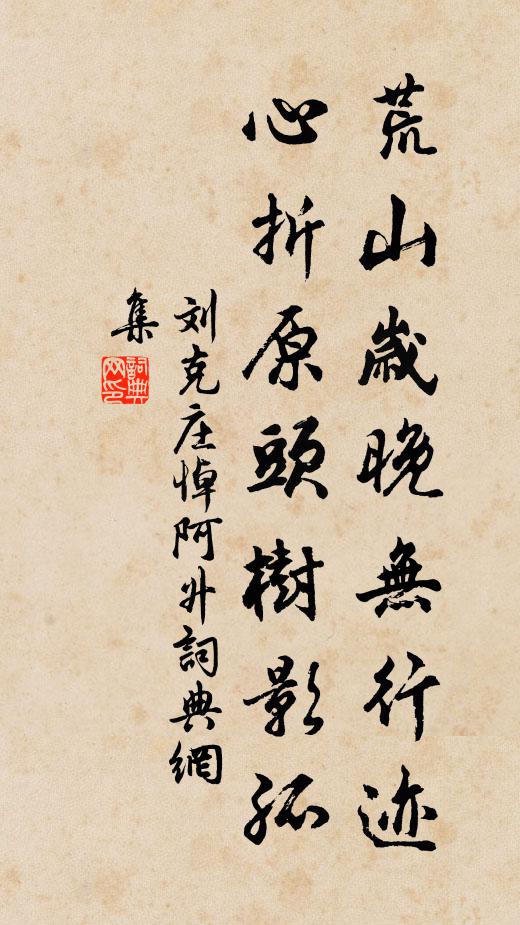 荒山歲晚無行迹
心折原頭樹影孤
刘克庄悼阿升詞典網
集
詞典網印